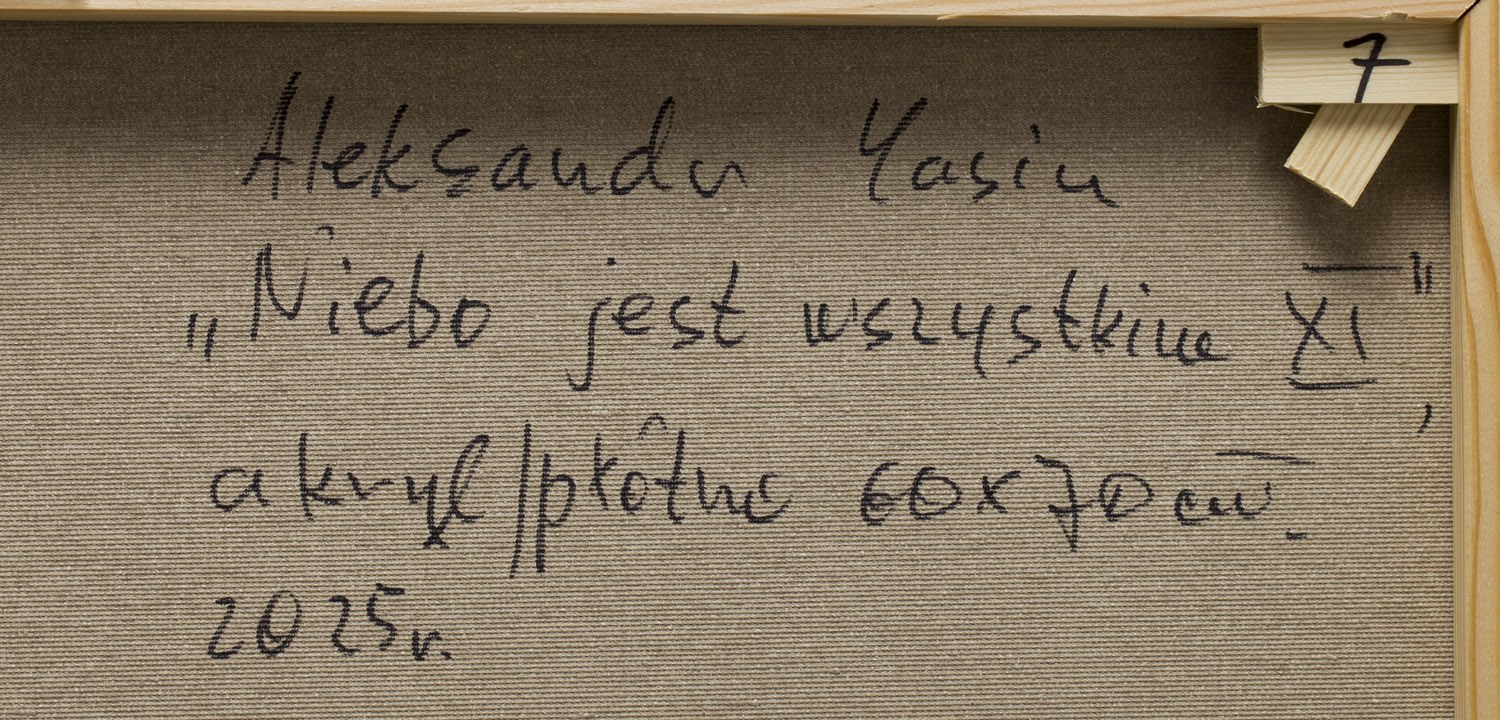 7
Aleksandr Yasin
„Niebo jest wszystkim XI",
akryl/płótno 60x70cm.
2025r.